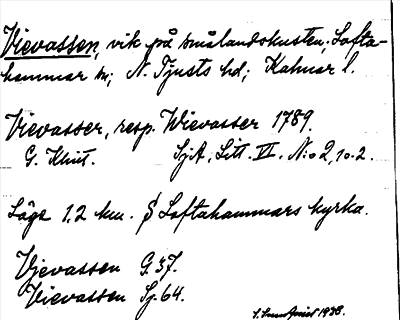 Vievassen, vik på smålandskusten, Lofta-
hammar sn; N. Tjusts hd; Kalmar l.
Vievasser, resp. Wievasser 1789.
G. Klint. SjA, Litt. VI. No 2, 10.2.
Läge 1,2 km. S Loftahammars kyrka.
Vjevassen G. 37.
Vievassen Sj. 64.
1938.